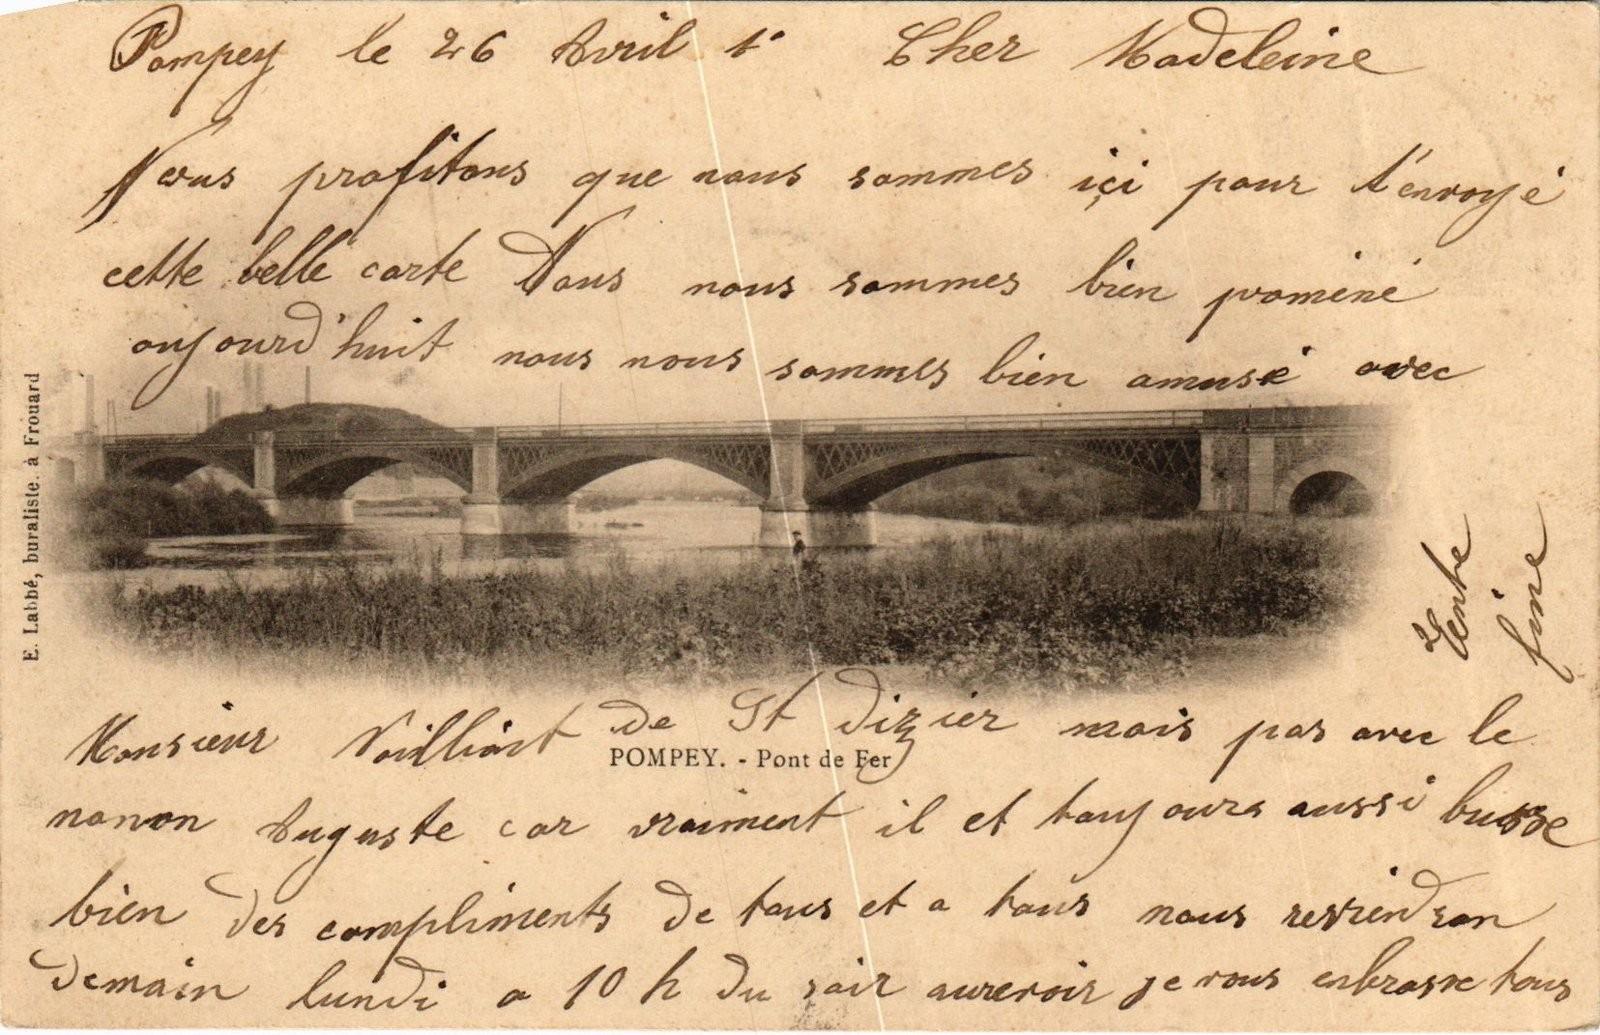 Pompey le 26 Avril Cher Madeleine
Nous profitons que nous sommes içi pour t'envoyé
cette belle carte Nous nous sommes bien promené
aujourd'huit nous nous sommes bien amusé avec
E. Labbé, buraliste. à Frouard
fine
Monsieur de St dizier mais pas avec le
POMPEY. - Pont de Fer
nonon Auguste car vraiment il et toujours aussi
bien des compliments de tous et a tous nous reviendron
demain lundi a 10 h du soir aurevoir je vous enbrasse tous